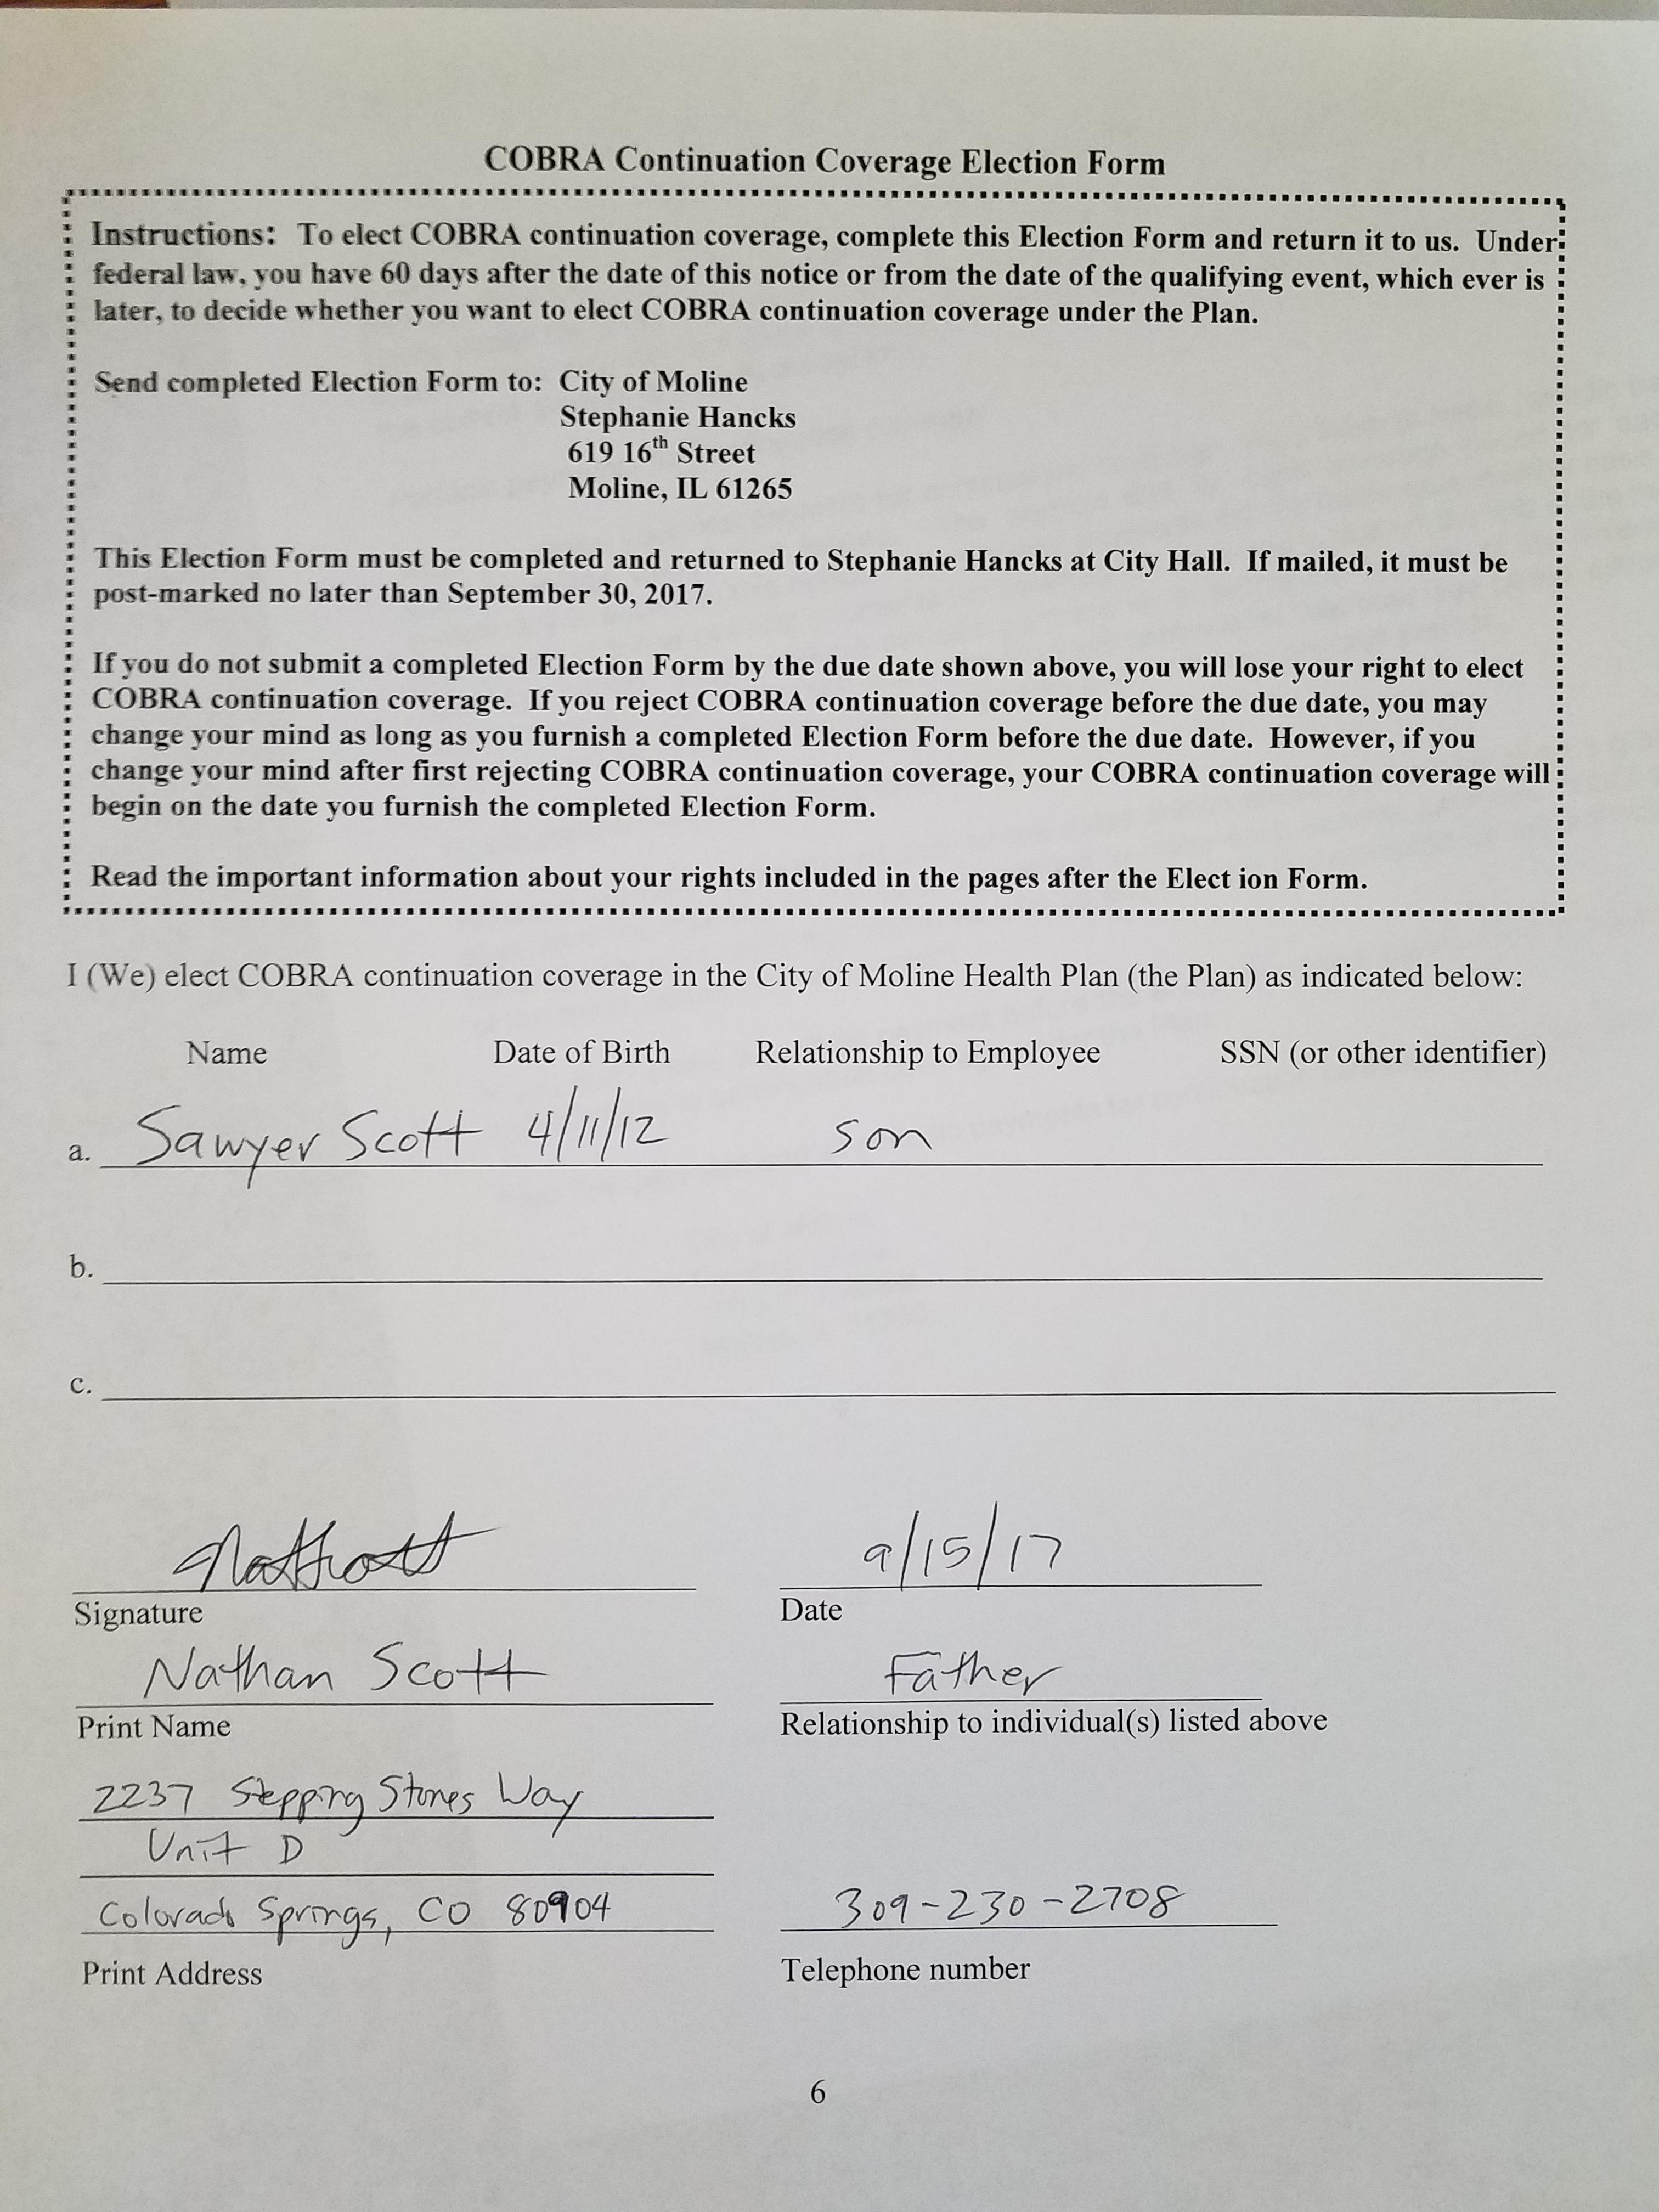 COBRA Continuation Coverage Election Form
Instructions: To elect COBRA continuation coverage, complete this Election Form and return it to us. Under
federal law, you have 60 days after the date of this notice or from the date of the qualifying event, which ever is
later, to decide whether you want to elect COBRA continuation coverage under the Plan.
Send completed Election Form to: City of Moline
Stephanie Hancks
619 16th Street
Moline, IL 61265
This Election Form must be completed and returned to Stephanie Hancks at City Hall. If mailed, it must be
post-marked no later than September 30, 2017.
If you do not submit a completed Election Form by the due date shown above, you will lose your right to elect
COBRA continuation coverage. If you reject COBRA continuation coverage before the due date, you may
change your mind as long as you furnish a completed Election Form before the due date. However, if you
change your mind after first rejecting COBRA continuation coverage, your COBRA continuation coverage will
begin on the date you furnish the completed Election Form.
Read the important information about your rights included in the pages after the Elect ion Form.
I (We) elect COBRA continuation coverage in the City of Moline Health Plan (the Plan) as indicated below:
Name Date of Birth Relationship to Employee SSN (or other identifier)
a. Sawyer Scott 4/11/12 son
b.
c.
9/15/17
Signature Date
Nathan Scott Father
Print Name Relationship to individual(s) listed above
2237 Stepping Stones Way
Unit D
Colorado Springs, CO 80904 309-230-2708
Print Address Telephone number
6